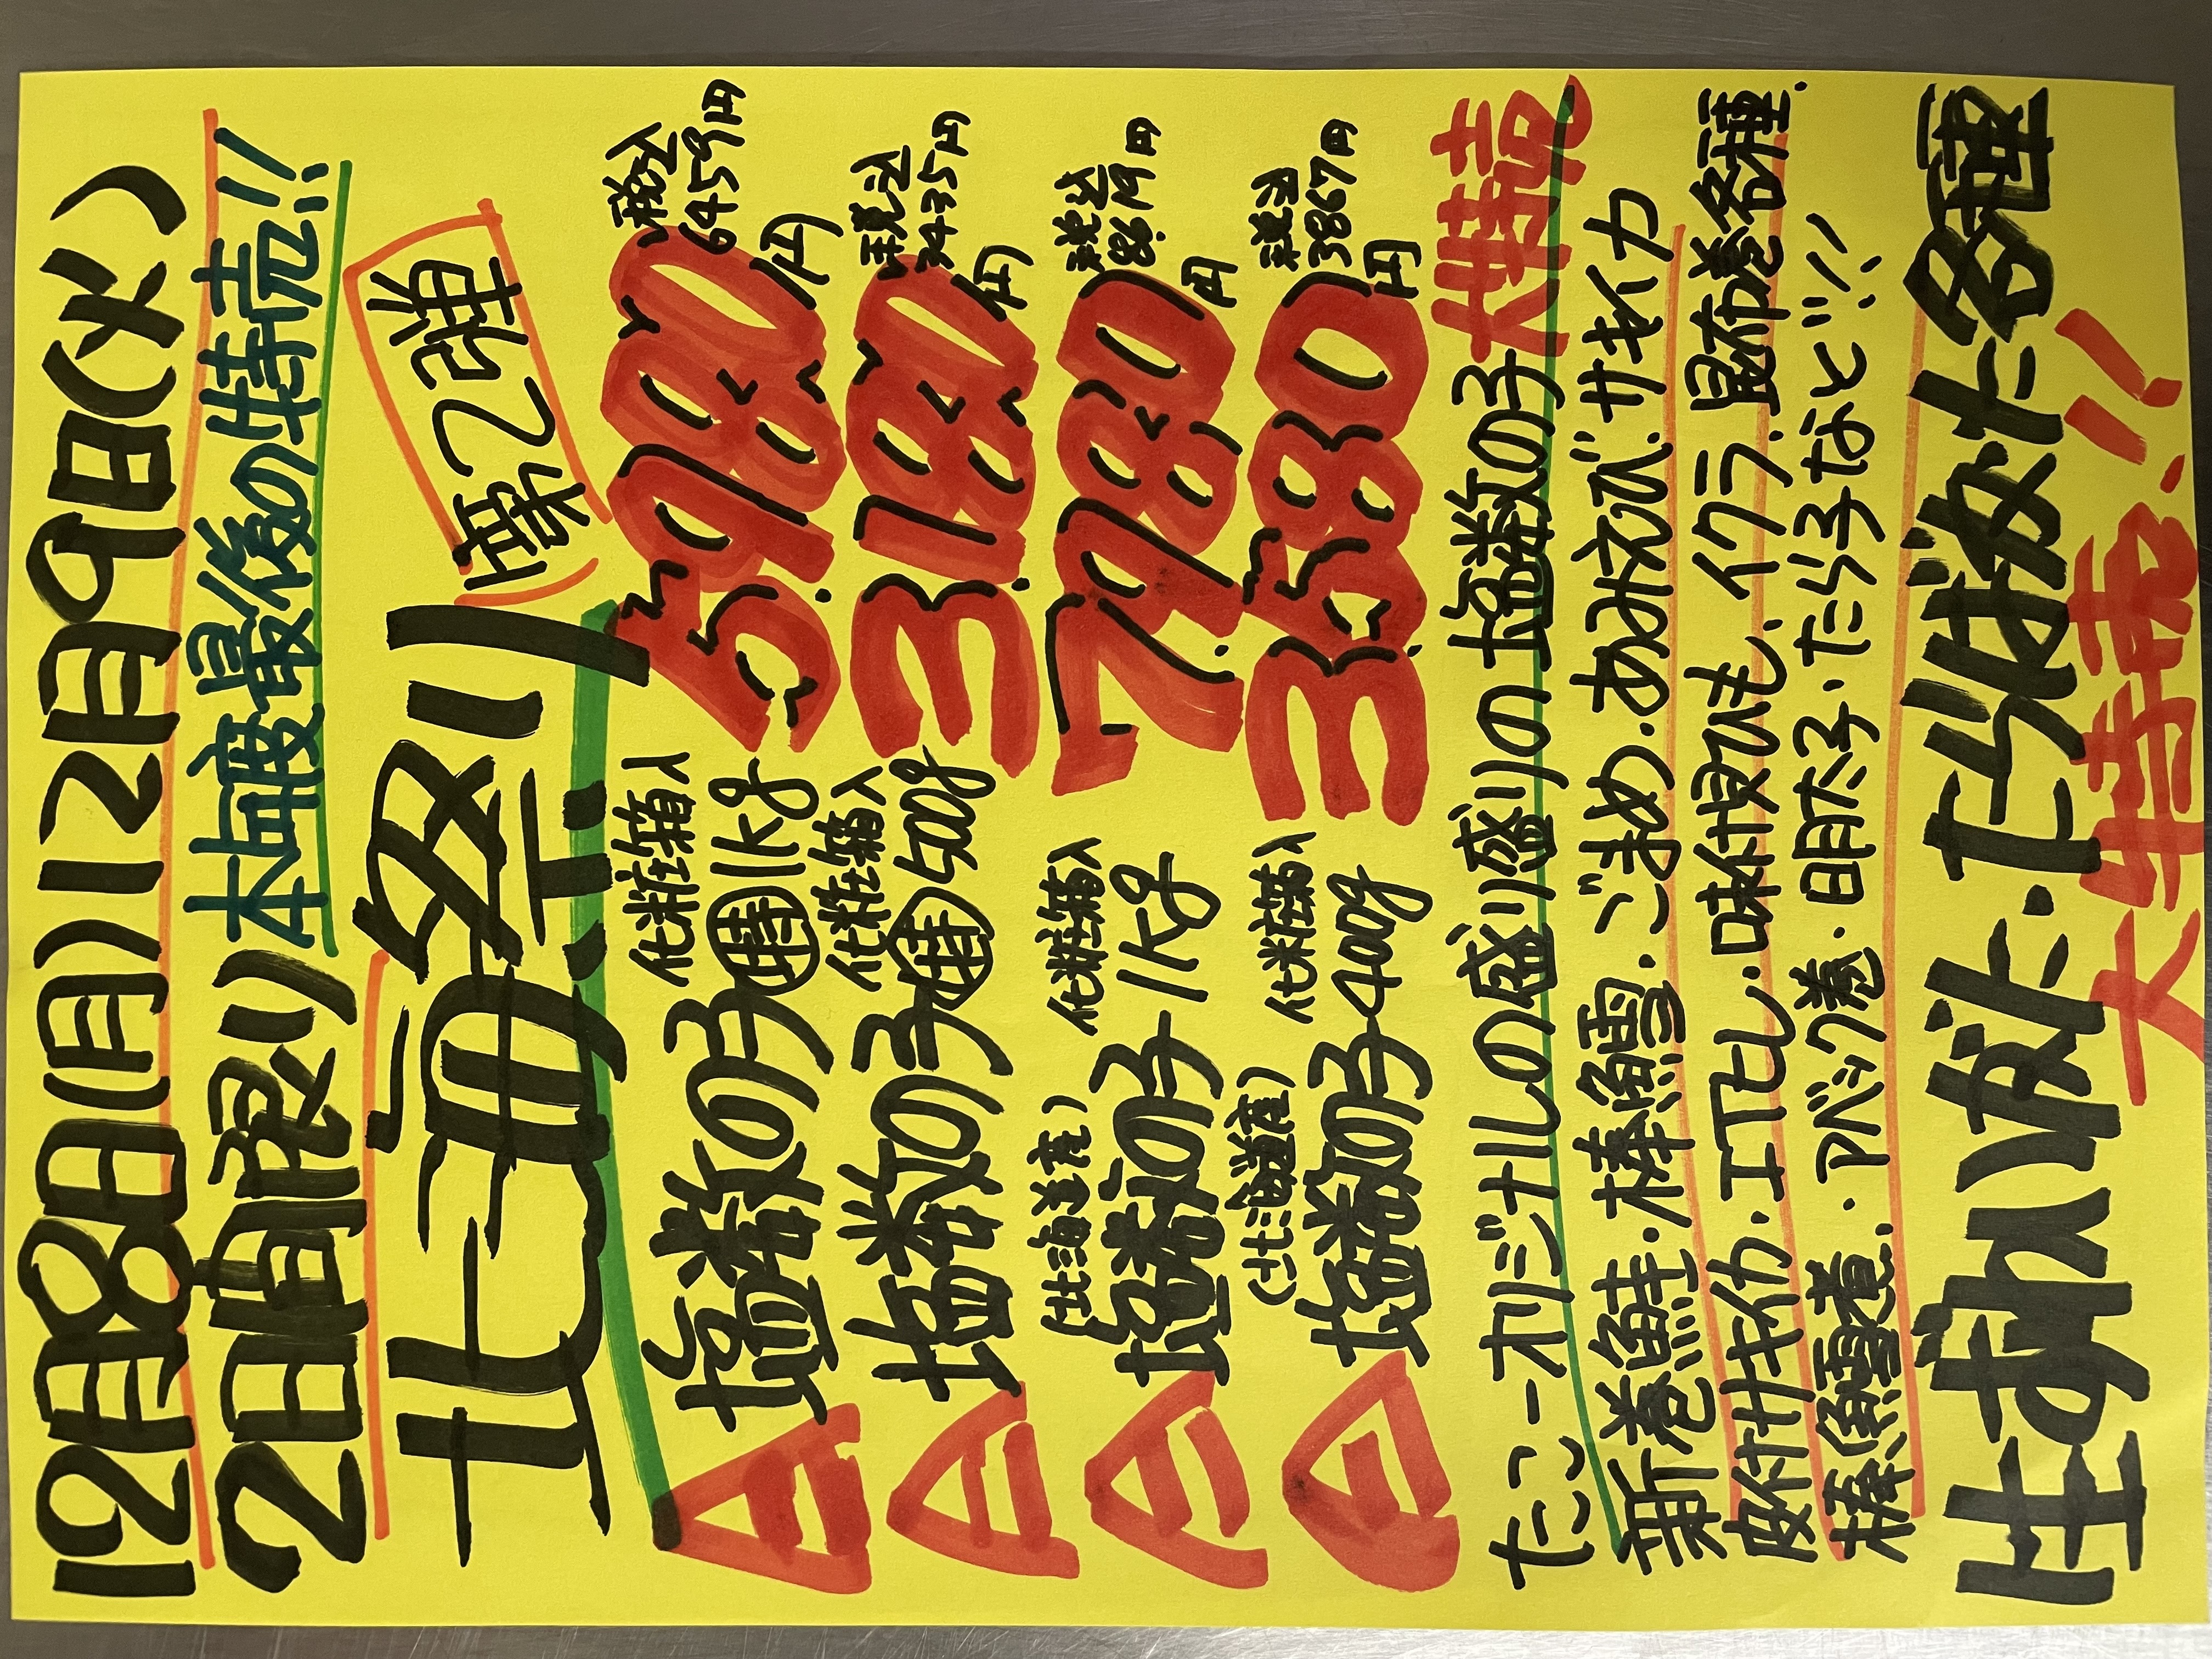 12月8日(月)12月9日(火)
2日限り 本年度最後の特売!!
北海祭り!!
第2弾
塩数の子 化粧箱入 特1kg 5,980円 税込6459円
塩数の子 化粧箱入 特500g 3,180円 税込3435円
(北海道産)塩数の子 化粧箱入 1kg 7,980円 税込8619円
(北海道産)塩数の子 化粧箱入 400g 3,580円 税込3867円
たこーオリジナルの盛り盛りの塩数の子 大特売
新巻鮭・棒鱈・ごまめ・あみえび・サキイカ
味付サキイカ・エテヒレ・味付貝ひも・イクラ・昆布巻各種
棒鱈煮・パック巻・明太子・たら子など!!
はまぐり・ぶた・たらばがに各種
大特売!!